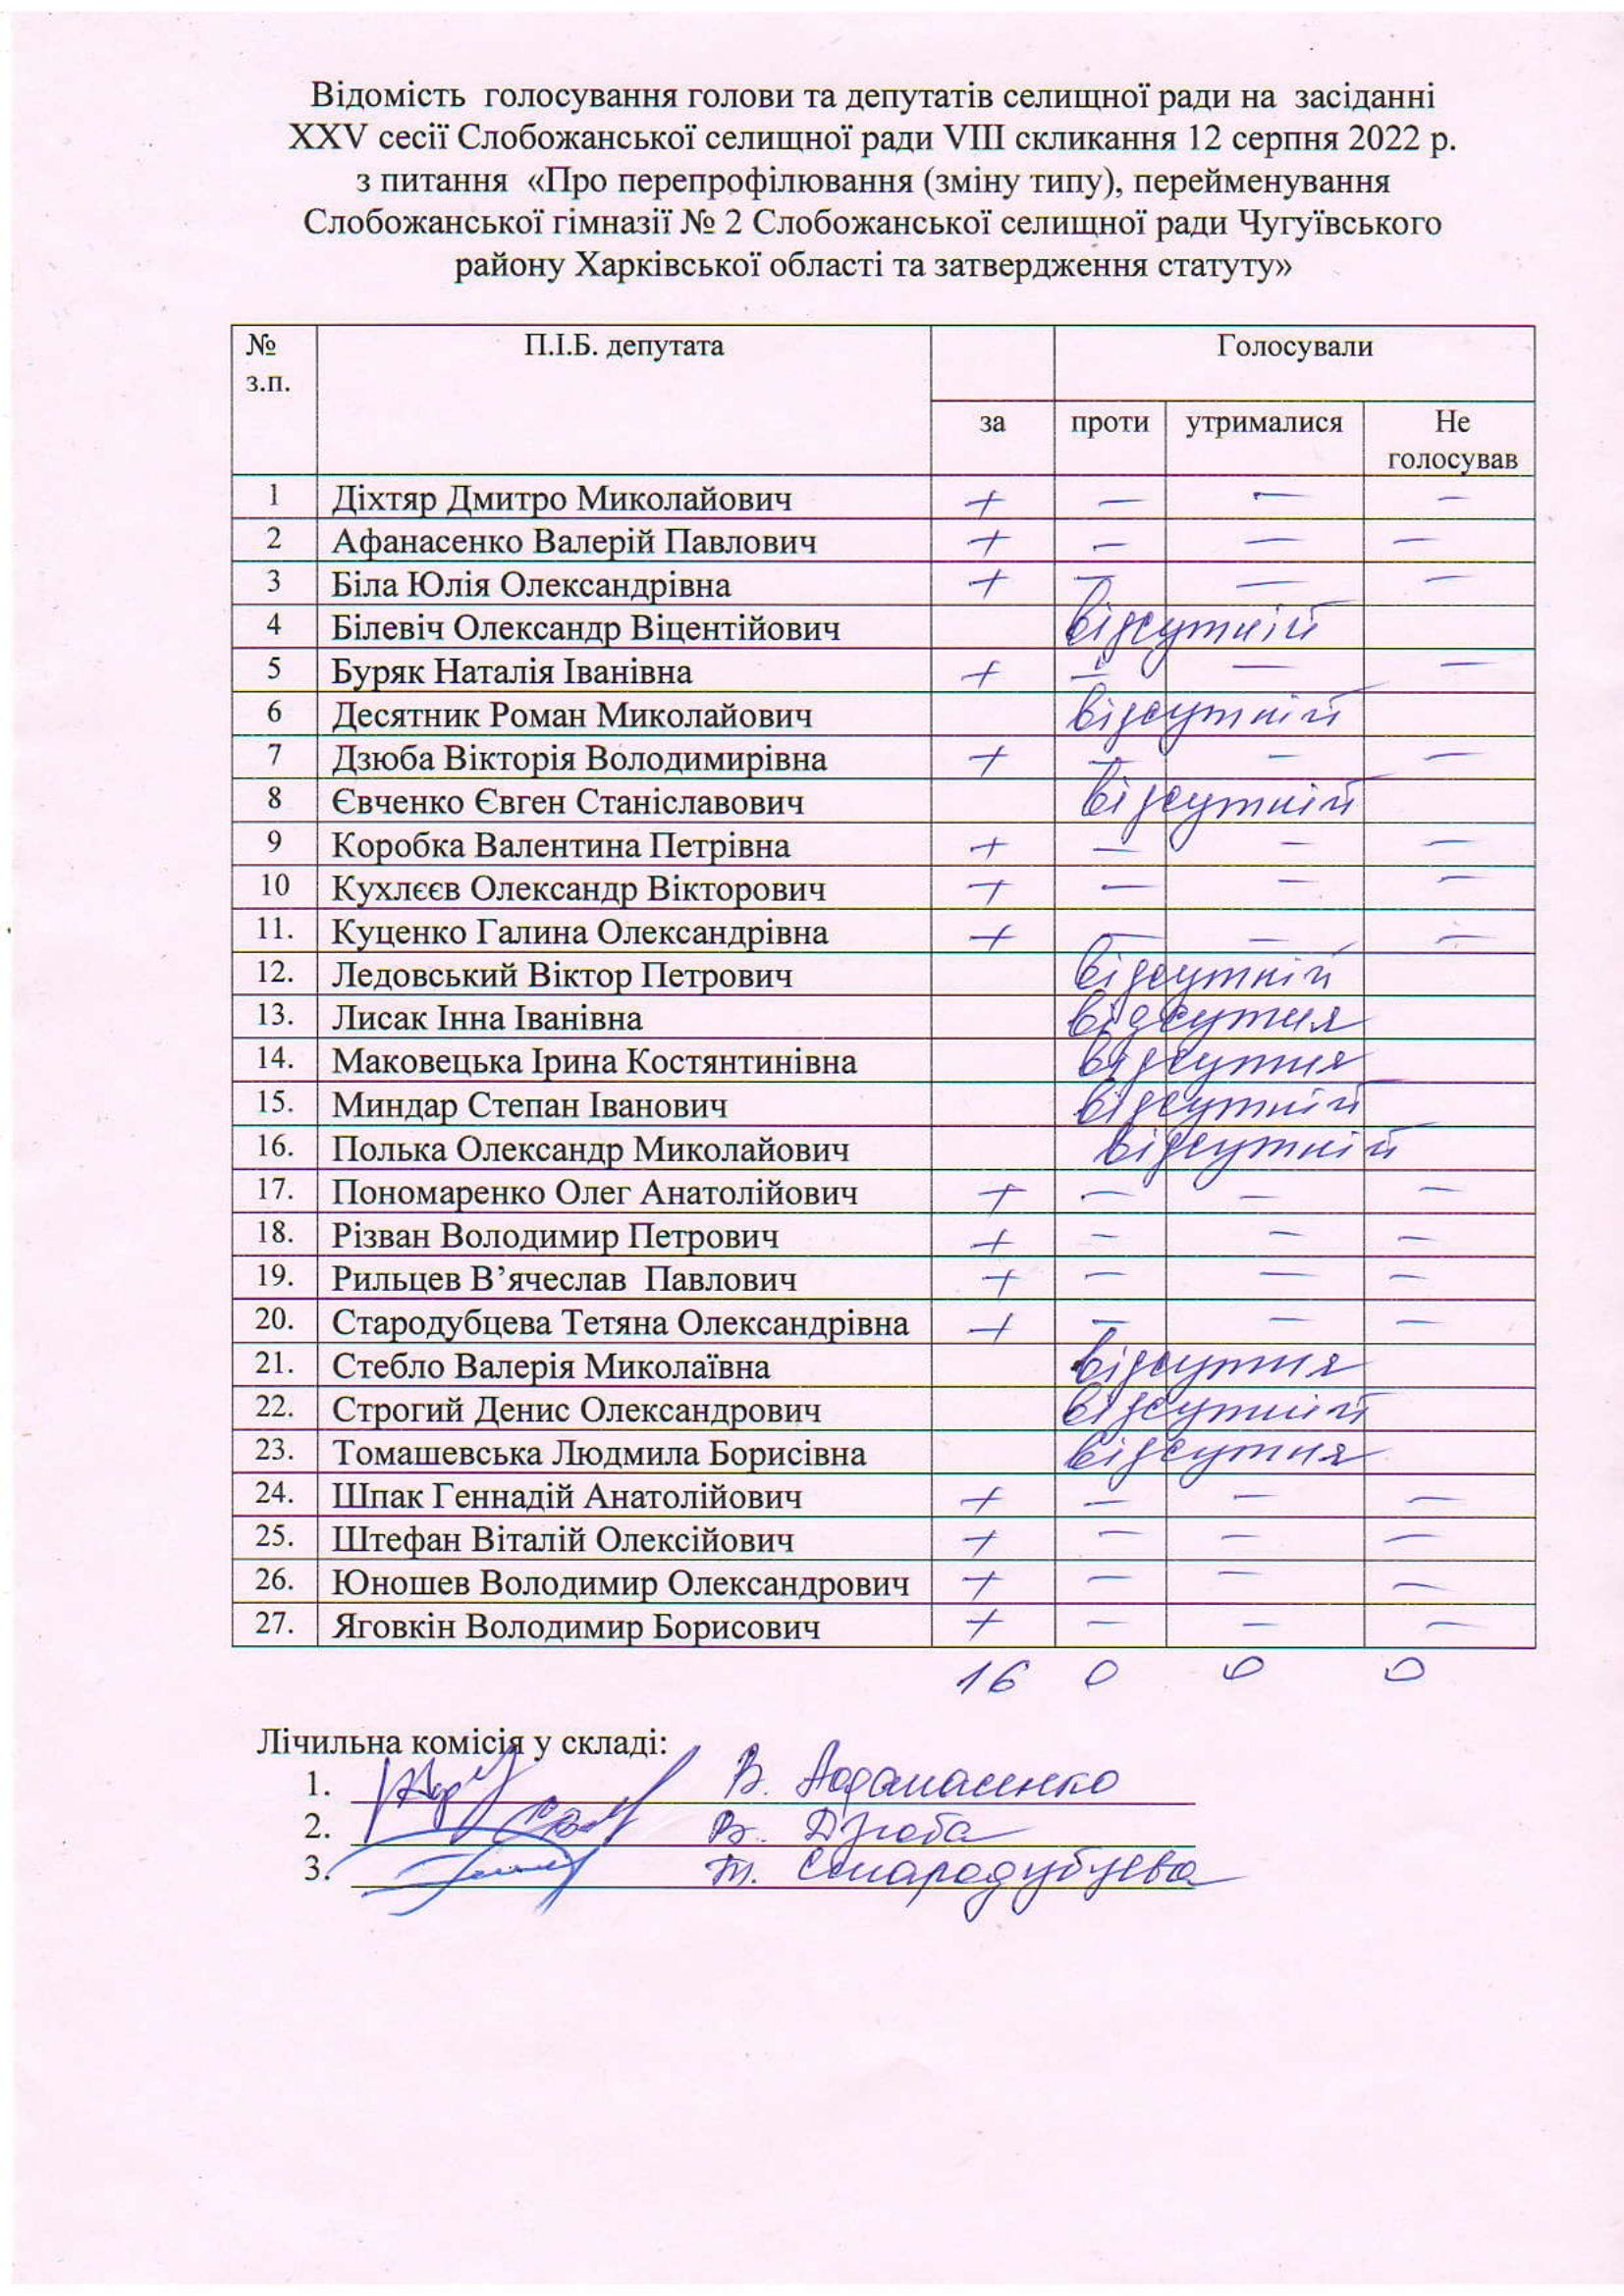 Відомість голосування голови та депутатів селищної ради на засіданні
XXV сесії Слобожанської селищної ради VIII скликання 12 серпня 2022 р.
з питання «Про перепрофілювання (зміну типу), перейменування
Слобожанської гімназії № 2 Слобожанської селищної ради Чугуївського
району Харківської області та затвердження статуту»
№ з.п. П.І.Б. депутата Голосували
за проти утрималися Не голосував
1 Діхтяр Дмитро Миколайович + — — —
2 Афанасенко Валерій Павлович + — — —
3 Біла Юлія Олександрівна + — — —
4 Білевіч Олександр Віцентійович відсутній
5 Буряк Наталія Іванівна + — — —
6 Десятник Роман Миколайович відсутній
7 Дзюба Вікторія Володимирівна + — — —
8 Євченко Євген Станіславович відсутній
9 Коробка Валентина Петрівна + — — —
10 Кухлєєв Олександр Вікторович + — — —
11. Куценко Галина Олександрівна + — — —
12. Ледовський Віктор Петрович відсутній
13. Лисак Інна Іванівна відсутня
14. Маковецька Ірина Костянтинівна відсутня
15. Миндар Степан Іванович відсутній
16. Полька Олександр Миколайович відсутній
17. Пономаренко Олег Анатолійович + — — —
18. Різван Володимир Петрович + — — —
19. Рильцев В’ячеслав Павлович + — — —
20. Стародубцева Тетяна Олександрівна + — — —
21. Стебло Валерія Миколаївна відсутня
22. Строгий Денис Олександрович відсутній
23. Томашевська Людмила Борисівна відсутня
24. Шпак Геннадій Анатолійович + — — —
25. Штефан Віталій Олексійович + — — —
26. Юношев Володимир Олександрович + — — —
27. Яговкін Володимир Борисович + — — —
16 0 0 0
Лічильна комісія у складі:
1. В. Афанасенко
2. В. Дзюба
3. Т. Стародубцева